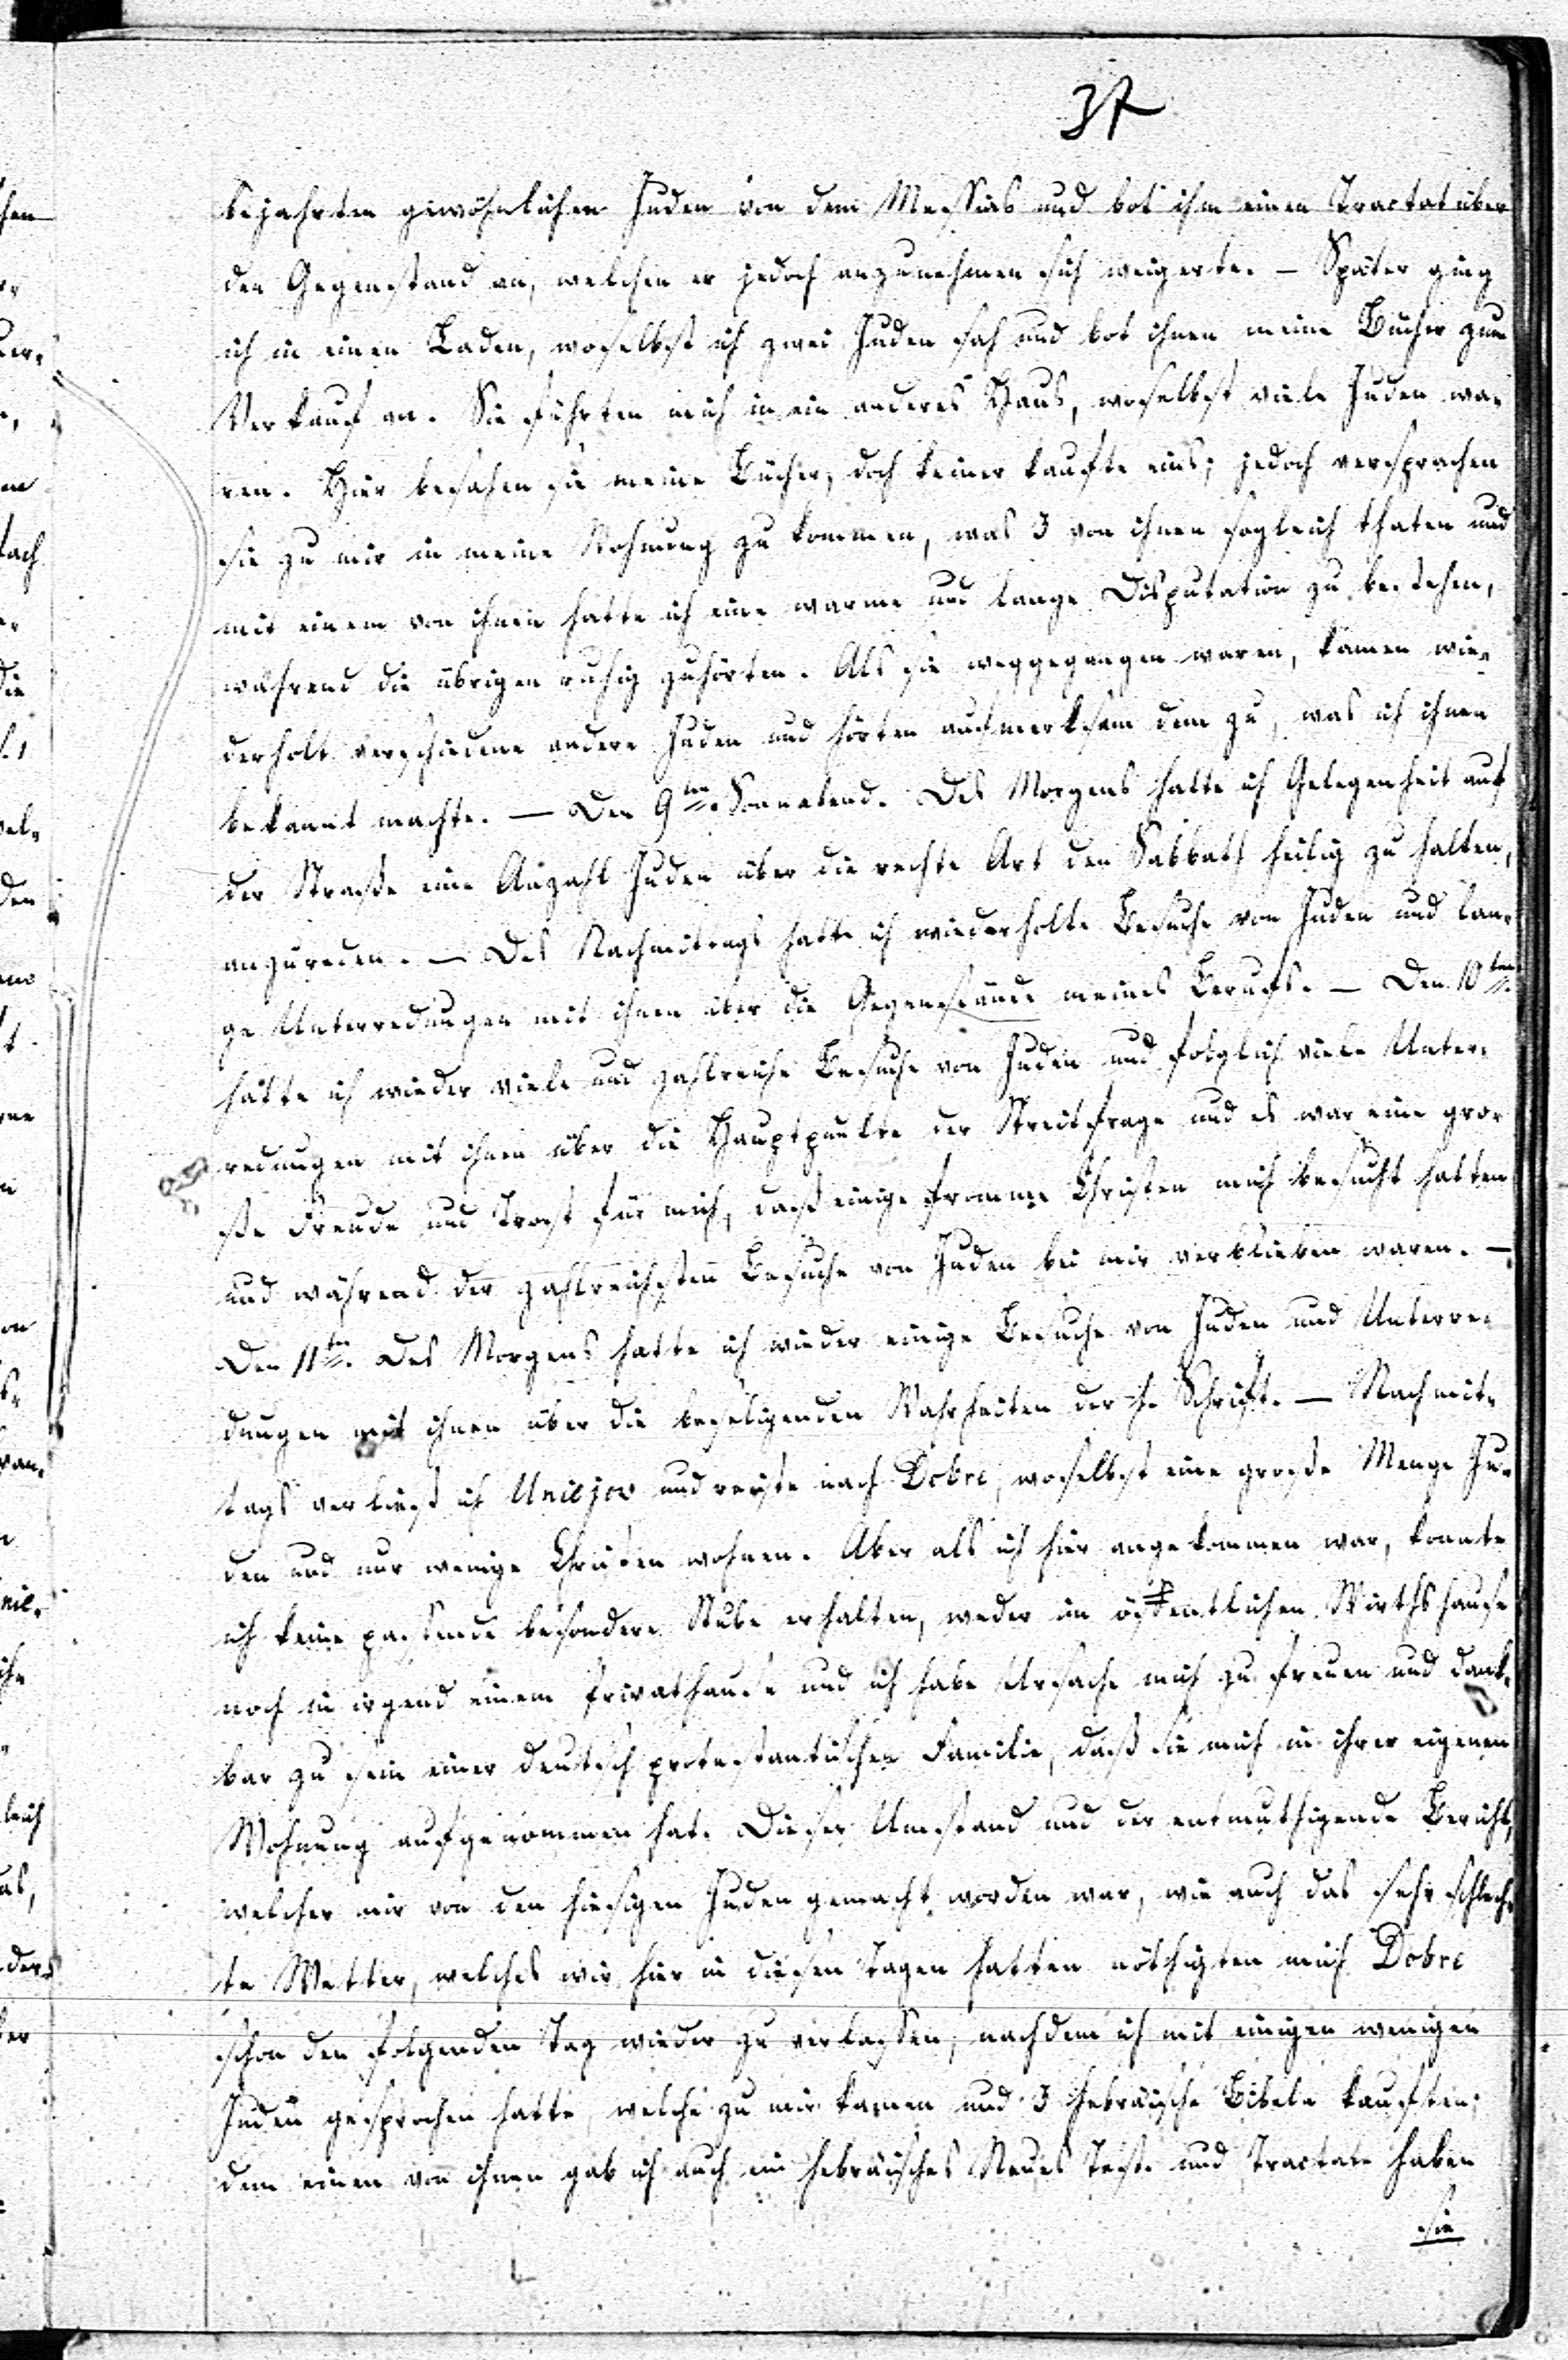 37
bejahrten gewöhnlichen Juden von dem Messias und bot ihm einen Tractat über
den Gegenstand an, welchen er jedoch anzunehmen sich weigerte. — Später ging
ich in einen Laden, woselbst ich zwei Juden sah und bot ihnen meine Bücher zum
Verkauf an. Sie führten mich in ein anderes Haus, woselbst viele Juden wa-
ren. Hier besahen sie meine Bücher, doch keiner kaufte eins; jedoch versprachen
sie zu mir in meine Wohnung zu kommen, was 3 von ihnen sogleich thaten und
mit einem von ihnen hatte ich eine warme und lange Disputation zu bestehen,
während die übrigen ruhig zuhörten. Als sie weggegangen waren, kamen wie-
derholt verschiedene andere Juden und hörten aufmerksam dem zu, was ich ihnen
bekannt machte. — Den 9ten Sonnabend. Des Morgens hatte ich Gelegenheit auf
der Straße eine Anzahl Juden über die rechte Art den Sabbath heilig zu halten,
anzureden. — Des Nachmittags hatte ich wiederholte Besuche von Juden und lan-
ge Unterredungen mit ihnen über die Gegenstände meines Berufs. — Den 10ten
hatte ich wieder viele und zahlreiche Besuche von Juden und folglich viele Unter-
redungen mit ihnen über die Hauptpunkte der Streitfrage und es war eine gro-
ße Freude und Trost für mich, daß einige fromme Christen mich besucht hatten
und während der zahlreichsten Besuche von Juden bei mir verblieben waren. —
Den 11ten. Des Morgens hatte ich wieder einige Besuche von Juden und Unterre-
dungen mit ihnen über die beseligenden Wahrheiten der h. Schrift. — Nachmit-
tags verließ ich Uniejow und reiste nach Dobre, woselbst eine große Menge Ju-
den und nur wenige Christen wohnen. Aber als ich hier angekommen war, konnte
ich keine passende besondere Stube erhalten, weder im öffentlichen Wirthshause
noch in irgend einem Privathause und ich habe Ursache mich zu freuen und dank-
bar zu sein einer deutsch protestantischen Familie, daß sie mich in ihrer eigenen
Wohnung aufgenommen hat. Dieser Umstand und der entmuthigende Bericht,
welcher mir von den hiesigen Juden gemacht worden war, wie auch das sehr schlech-
te Wetter, welches wir hier in diesen Tagen hatten nöthigten mich Dobre
schon den folgenden Tag wieder zu verlassen, nachdem ich mit einigen wenigen
Juden gesprochen hatte, welche zu mir kamen und 3 hebräische Bibeln kauften;
dem einen von ihnen gab ich auch ein hebräisches Neues Test. und Tractate haben
sie